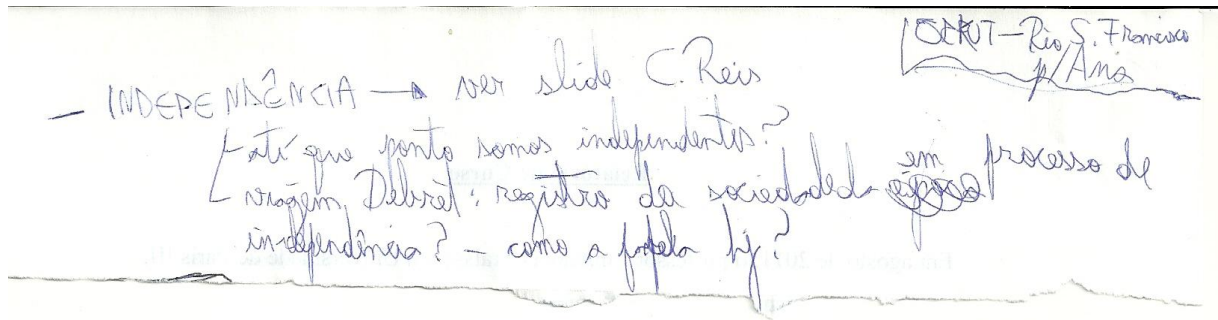 Rio S. Francisco
p/ Ana
— INDEPENDÊNCIA → ver slide C. Reis
até que ponto somos independentes?
viagem Debret: registro da sociedade em processo de
independência? – como a hj?